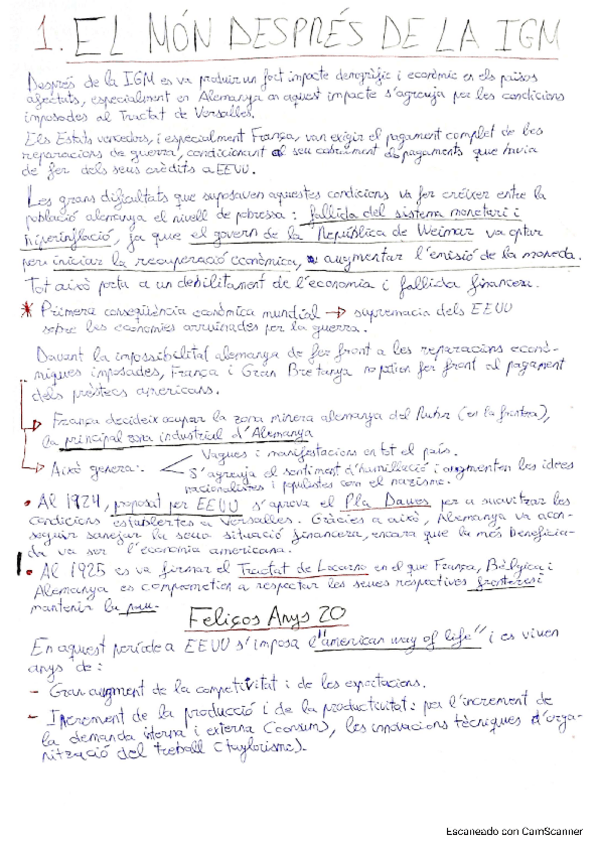 1. EL MÓN DESPRÉS DE LA IGM
Després de la IGM es va produir un fort impacte demogràfic i econòmic en els països
afectats, especialment en Alemanya on aquest impacte s'agreuja per les condicions
imposades al Tractat de Versalles.
Els Estats vencedors, i especialment França, van exigir el pagament complet de les
reparacions de guerra, condicionant al seu cobrament els pagaments que havia
de fer dels seus crèdits a EEUU.
Les grans dificultats que suposaven aquestes condicions va fer créixer entre la
població alemanya el nivell de pobressa: fallida del sistema monetari i
hiperinflació, ja que el govern de la República de Weimar va optar
per iniciar la recuperació econòmica, augmentar l'emisió de la moneda.
Tot això porta a un debilitament de l'economia i fallida financera.
* Primera conseqüència econòmica mundial → supremacia dels EEUU
sobre les economies arruinades per la guerra.
Davant la impossibilitat alemanya de fer front a les reparacions econò-
miques imposades, França i Gran Bretanya no podien fer front al pagament
dels préstecs americans.
→ França decideix ocupar la zona minera alemanya del Ruhr (en la frontera),
la principal zona industrial d'Alemanya
Vagues i manifestacions en tot el país.
→ Això genera:
S'agreuja el sentiment d'humillació i augmenten les idees
nacionalistes i populistes com el nazisme.
• Al 1924, proposat per EEUU s'aprova el Pla Dawes per a suavitzar les
condicions establertes a Versalles. Gràcies a això, Alemanya va acon-
seguir sanejar la seua situació financera, encara que la més beneficia-
da va ser l'economia americana.
• Al 1925 es va firmar el Tractat de Locarno en el que França, Bèlgica i
Alemanya es comprometien a respectar les seues respectives fronteres i
mantenir la pau.
Feliços Anys 20
En aquest període a EEUU s'imposa l'"american way of life" i es viuen
anys de:
- Gran augment de la competivitat i de les espectacions.
- Increment de la producció i de la productivitat: per l'increment de
la demanda interna i externa (consum), les innovacions tècniques d'orga-
nització del treball (taylorisme).
Escaneado con CamScanner